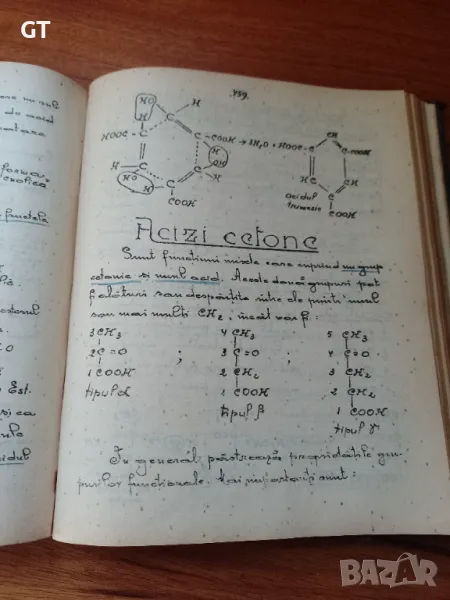 GT
759.
HO H
HOOC C COOH → 3H₂O + HOOC CH COOH
HO H C COOH acidul trimesic COOH
Acizi cetone
Sunt funcțiuni mixte care cuprind un grup
cetonic și unul acid. Aceste două grupuri pot
fi alături sau despărțite între ele printr'unul
sau mai mulți CH₂, încât vor fi:
3 CH₃ 4 CH₃ 5 CH₃
2 C=O ; 3 C=O ; 4 C=O
1 COOH 2 CH₂ 3 CH₂
tipul α 1 COOH 2 CH₂
tipul β 1 COOH
tipul γ
În general păstrează proprietățile gru-
purilor funcționale. Mai importanți sunt:
de acid
fructele
Est.
și ca
acidul
BAZAR